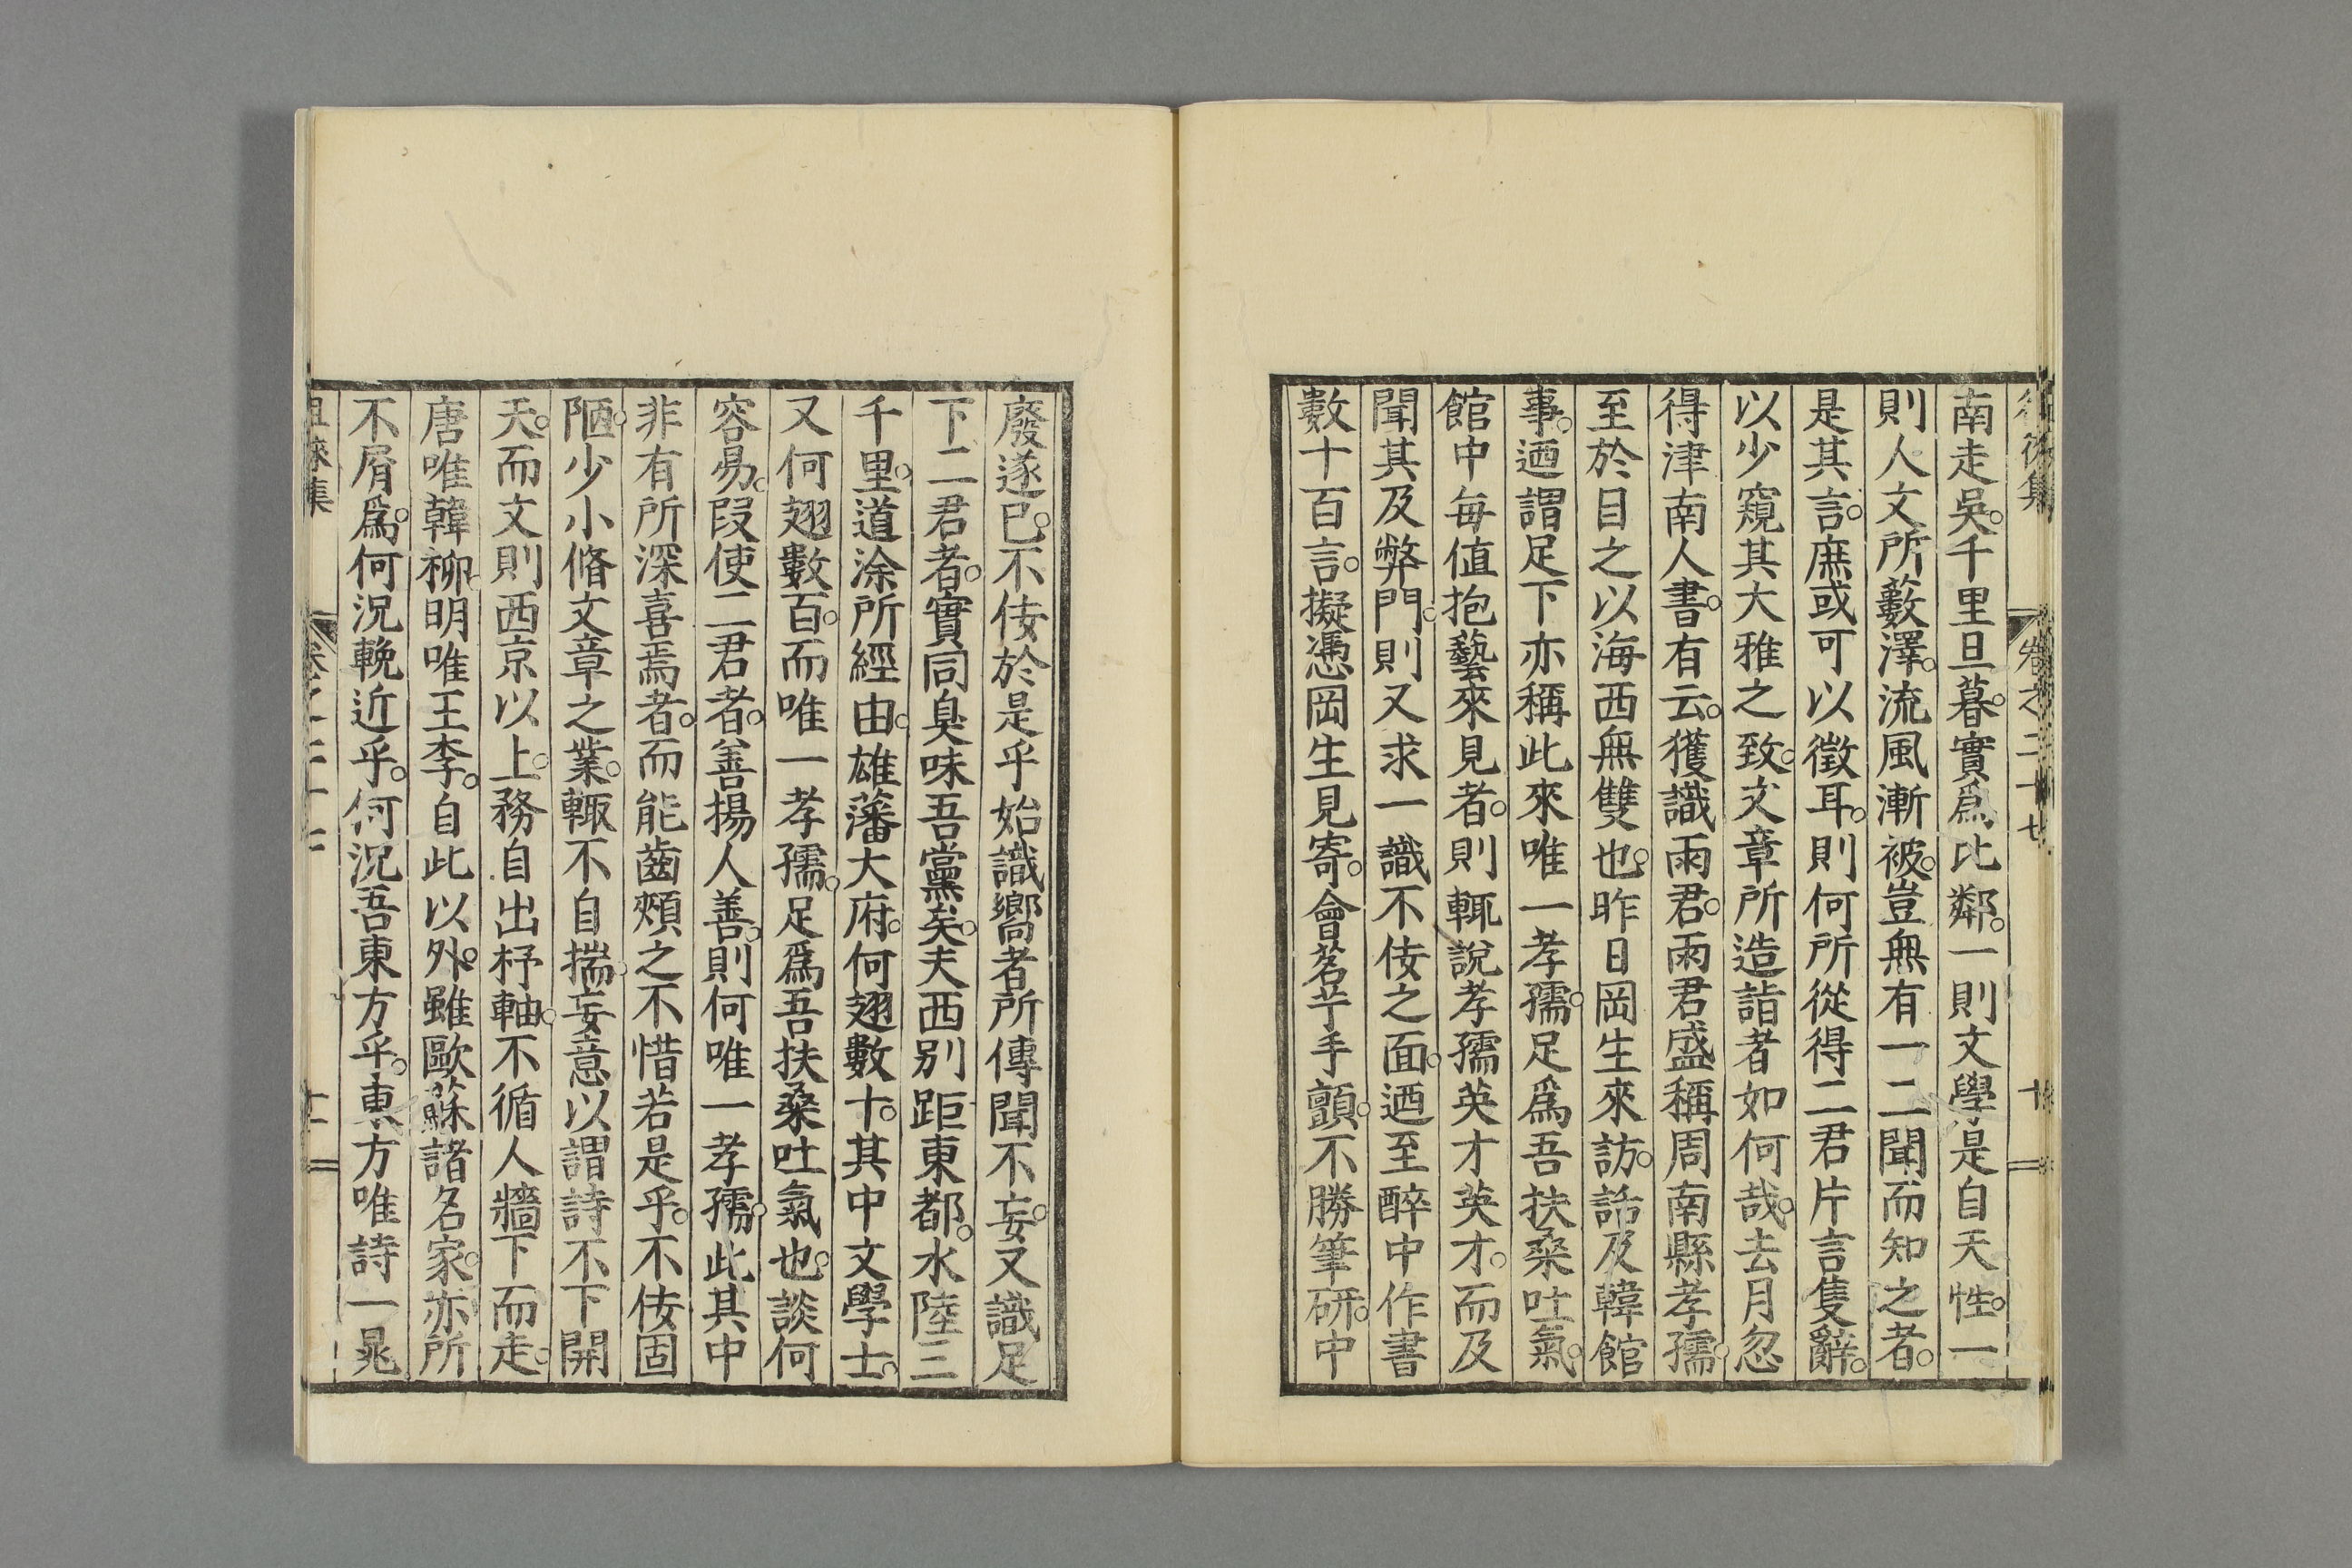 南走吳。千里旦暮。實爲比鄰。一則文學是自天性。一
則人文所藪澤。流風漸被。豈無有一二聞而知之者。
是其言。庶或可以徵耳。則何所從得二君片言隻辭。
以少窺其大雅之致。文章所造詣者如何哉。去月忽
得津南人書。有云。獲識雨君。雨君盛稱周南縣孝孺。
至於目之以海西無雙也。昨日岡生來訪。話及韓館
事。迺謂足下亦稱此來唯一孝孺。足爲吾扶桑吐氣。
館中每值抱藝來見者。則輒說孝孺英才英才。而及
聞其及弊門。則又求一識不佞之面。迺至醉中作書
數十百言。擬憑岡生見寄。會茗艼手顫。不勝筆研。中
廢遂已。不佞於是乎始識嚮者所傳聞不妄。又識足
下二君者。實同臭味吾黨矣。夫西別距東都。水陸三
千里。道涂所經由。雄藩大府。何翅數十。其中文學士。
又何翅數百。而唯一孝孺。足爲吾扶桑吐氣也。談何
容易。叚使二君者。善揚人善。則何唯一孝孺。此其中
非有所深喜焉者。而能齒頰之不惜若是乎。不佞固
陋。少小脩文章之業。輙不自揣。妄意以謂詩不下開
天。而文則西京以上。務自出杼軸。不循人牆下而走。
唐唯韓柳。明唯王李。自此以外。雖歐蘇諸名家。亦所
不屑爲。何況輓近乎。何況吾東方乎。東方唯詩一晁
徂徠集 卷之二十七 十
徂徠集 卷之二十七 十一